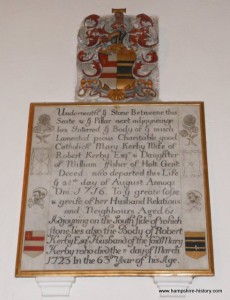 Underneath ye Stone Betweene this
Seate & ye Pillar next adjoyneinge
lies Interred ye Body of ye much
Lamented pious Charitable good
Catholick Mary Kerby Wife of
Robert Kerby Esqr & Daughter
of William fisher of Holt Gent
Deced. who departed this Life
ye day of August Annoqe
Dni. 1716. To ye greate losse
& greife of her Husband Relations
and Neighbours Aged
Adjoyning on the South side of which
stone lies also the Body of Robert
Kerby Esqr Husband of the said Mary
Kerby who died the day of March
1723 In the 63rd Year of his Age.
www.hampshire-history.com